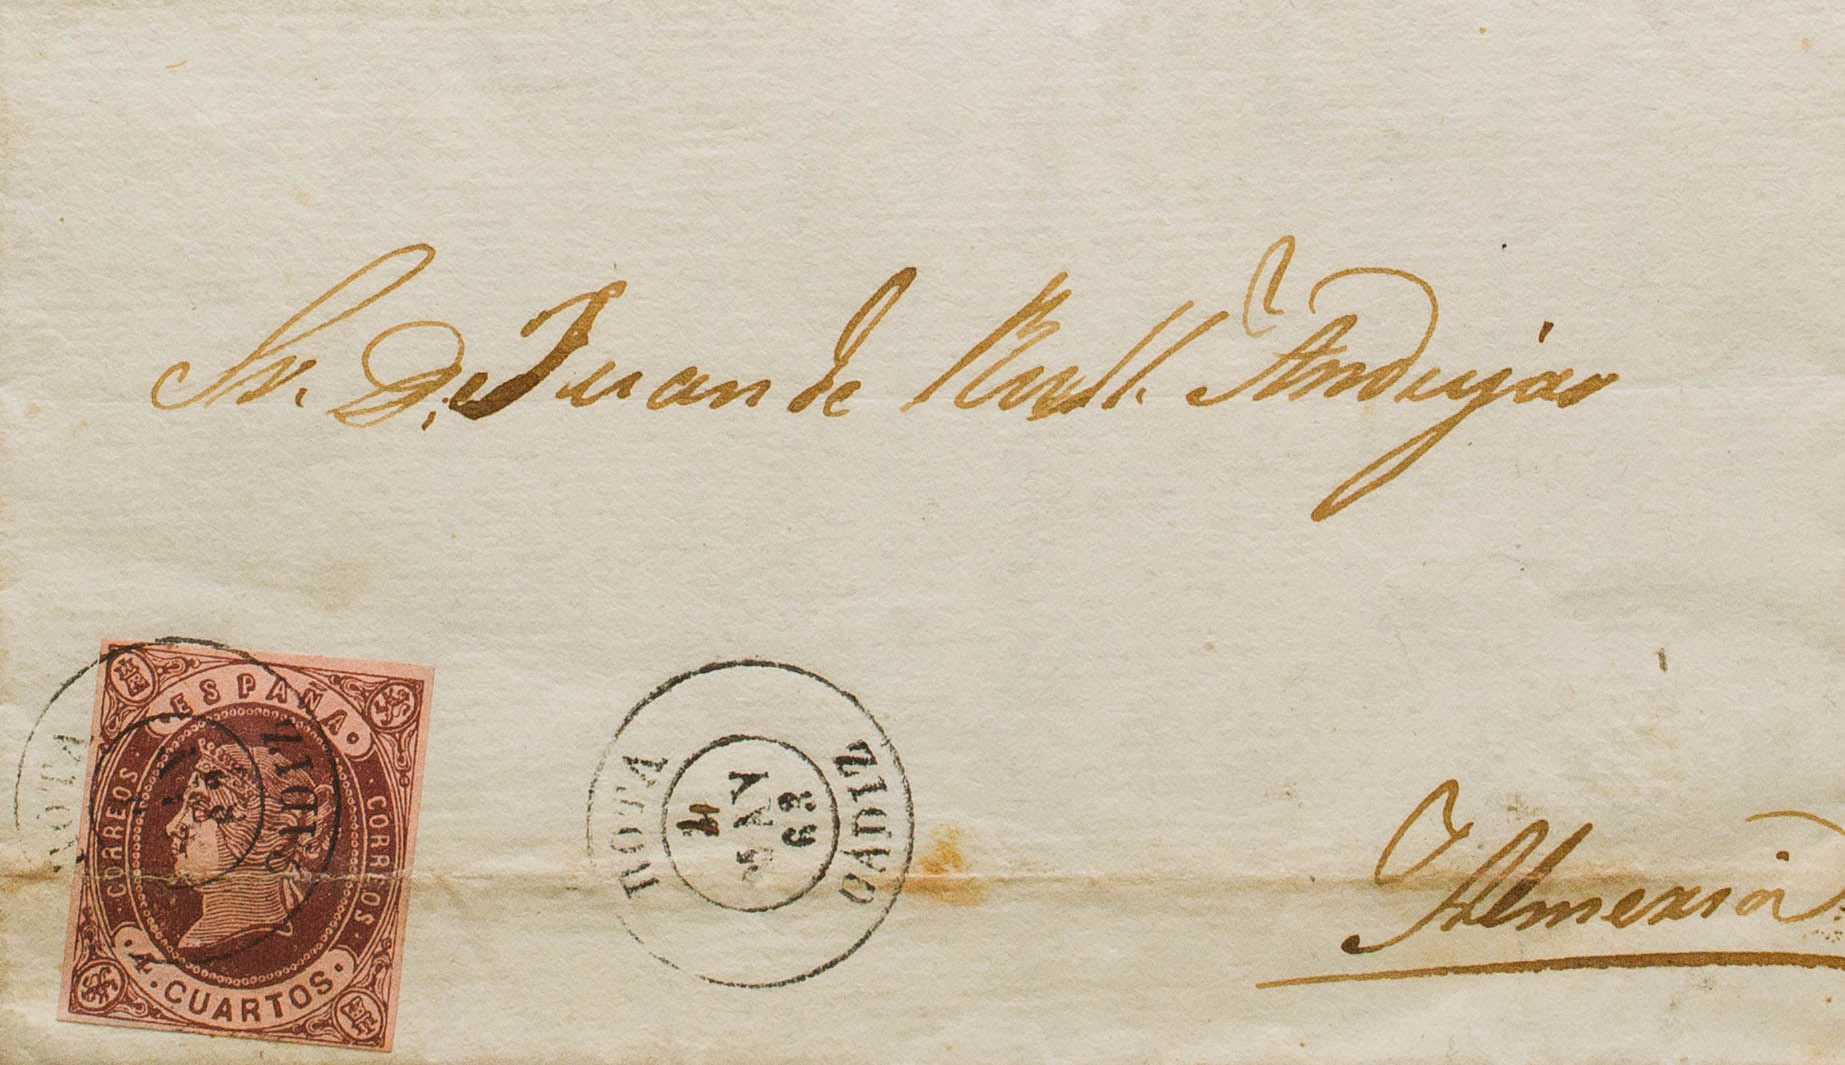 Sr. D. Juan de Rull. Andujar
ESPAÑA
CORREOS
CORREOS
4. CUARTOS
ROTA
CADIZ
ROTA
4
MAY
63
CADIZ
Almeria